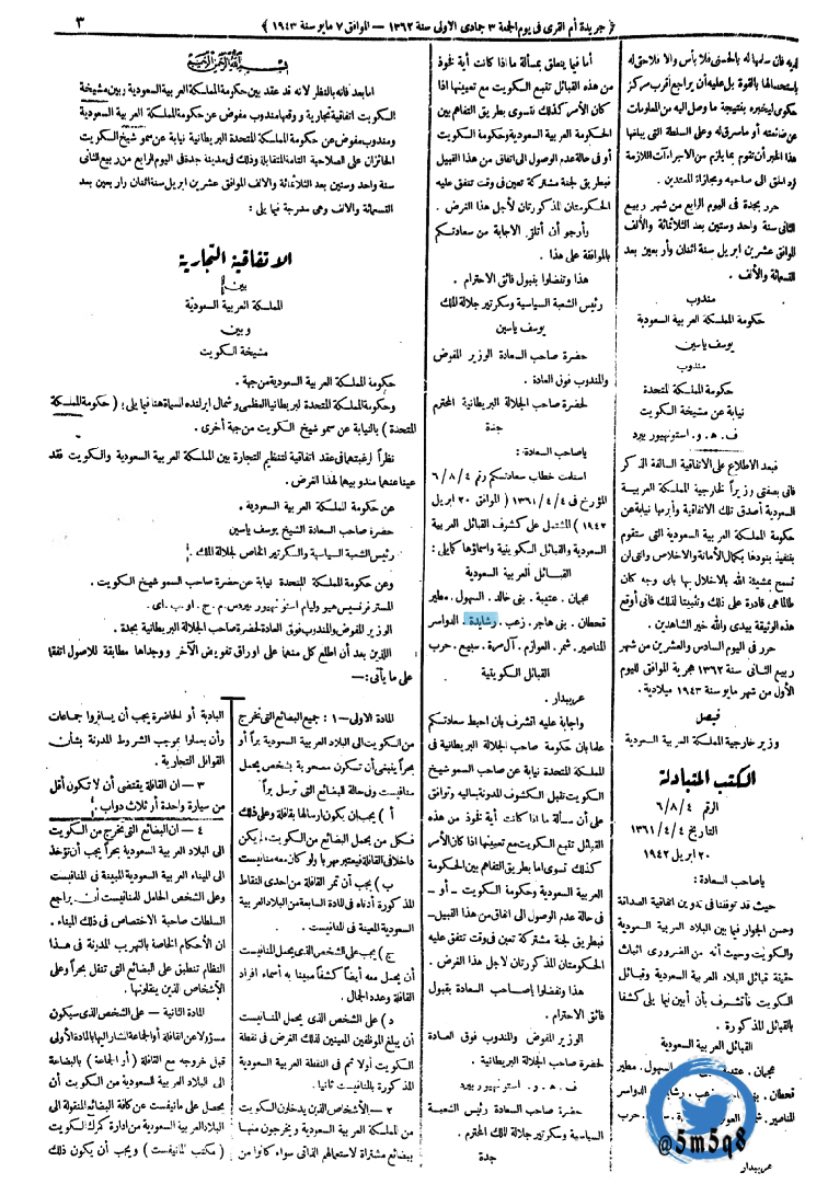 ﴿ جريدة أم القرى في يوم الجمعة ٣ جمادى الاولى سنة ١٣٦٢ — الموافق ٧ مايو سنة ١٩٤٣ ﴾
٣
لديه فان سلمها له بالحسنى فلا بأس والا فلاحق له
باستحصالها بالقوة بل عليه أن يراجع أقرب مركز
حكومى ليخبره بنتيجة ما وصل اليه من المعلومات
عن ضائعته أو ماسرق له وعلى السلطة التى يبلغها
هذا الخبر أن تقوم بما يلزم من الاجراءآت اللازمة
لرد الحق الى صاحبه ومجازاة المعتدين .
حرر بجدة فى اليوم الرابع من شهر ربيع
الثانى سنة واحد وستين بعد الثلاثمائة والألف
الموافق عشرين ابريل سنة اثنان وأربعين بعد
التسمائة والألف .
مندوب
حكومة المملكة العربية السعودية
يوسف ياسين
مندوب
حكومة المملكة المتحدة
نيابة عن مشيخة الكويت
ف . ه . و . استونهيور بيرد
فبعد الاطلاع على الاتفاقية السالفة الذكر
فانى بصفتى وزيراً لخارجية المملكة العربية
السعودية أصدق تلك الاتفاقية وأبرمها نيابة عن
حكومة المملكة العربية السعودية التى ستقوم
بتنفيذ بنودها بكمال الأمانة والاخلاص والتى لن
تسمح بمشيئة الله بالاخلال بها باى وجه كان
طالماهى قادرة على ذلك وتثبيتا لذلك فانى أوقع
هذه الوثيقة بيدى والله خير الشاهدين .
حرر فى اليوم السادس والعشرين من شهر
ربيع الثانى سنة ١٣٦٢ هجرية الموافق لليوم
الأول من شهر مايو سنة ١٩٤٣ ميلادية .
فيصل
وزير خارجية المملكة العربية السعودية
الكتب المتبادلة
الرقم ٦/٨/٤
التاريخ ١٣٦١/٤/٤
٢٠ ابريل ١٩٤٢
ياصاحب السعادة :
حيث قد توفقنا فى تدوين اتفاقية الصداقة
وحسن الجوار فيما بين البلاد العربية السعودية
والكويت وحيث أنه من الضرورى اثبات
حقيقة قبائل البلاد العربية السعودية وقبائل
الكويت فأتشرف بأن أبين فيما يلى كشفا
بالقبائل المذكورة .
القبائل العربية السعودية
عجمان . عتيبة . السهول . مطير
قحطان . زعب . الدواسر
المناصير . حرب
عريبدار
@5m5q8
أما فيما يتعلق بمسألة ما اذا كانت أية فخوذ
من هذه القبائل تتبع الكويت مع تعيينها اذا
كان الأمر كذلك تسوى بطريق التفاهم بين
الحكومة العربية السعودية وحكومة الكويت
أو فى حالة عدم الوصول الى اتفاق من هذا القبيل
فبطريق لجنة مشتركة تعين فى وقت تتفق عليه
الحكومتان المذكورتان لأجل هذا الغرض .
وأرجو أن أتلقى الاجابة من سعادتكم
بالموافقة على هذا .
هذا وتفضلوا بقبول فائق الاحترام .
رئيس الشعبة السياسية وسكرتير جلالة الملك
يوسف ياسين
حضرة صاحب السعادة الوزير المفوض
والمندوب فوق العادة .
لحضرة صاحب الجلالة البريطانية المحترم
جدة
ياصاحب السعادة :
استلمت خطاب سعادتكم رقم ٦/٨/٤
المؤرخ فى ١٣٦١/٤/٤ ( الموافق ٢٠ ابريل
١٩٤٢ ) المشتمل على كشوف القبائل العربية
السعودية والقبائل الكويتية واسماؤها كمايلى :
القبـائل العربية السعودية
عجمان . عتيبة . بنى خالد . السهول . مطير
قحطان . بنى هاجر . زعب . رشايدة . الدواسر
المناصير . شمر . العوازم . آل مرة . سبيع . حرب
القبائل الكويتية
عريبدار .
واجابة عليه اتشرف بان احيط سعادتكم
علما بان حكومة صاحب الجلالة البريطانية فى
المملكة المتحدة نيابة عن صاحب السمو شيخ
الكويت تقبل الكشوف المدونة بعاليه وتوافق
على أن مسألة ما اذا كانت أية فخوذ من هذه
القبائل تتبع الكويت مع تعيينها اذا كان الأمر
كذلك تسوى اما بطريق التفاهم بين الحكومة
العربية السعودية وحكومة الكويت - أو -
فى حالة عدم الوصول الى اتفاق من هذا القبيل -
فبطريق لجنة مشتركة تعين فى وقت تتفق عليه
الحكومتان المذكورتان لاجل هذا الغرض .
هذا وتفضلوا ياصاحب السعادة بقبول
فائق الاحترام .
الوزير المفوض والمندوب فوق العادة
لحضرة صاحب الجلالة البريطانية .
ف . ه . و . استونهيور بيرد
حضرة صاحب السعادة رئيس الشعبة
السياسية وسكرتير جلالة الملك المحترم .
جدة
بسم الله الرحمن الرحيم
اما بعد فانه بالنظر لانه قد عقد بين حكومة المملكة العربية السعودية وبين مشيخة
الكويت اتفاقية تجارية ووقعها مندوب مفوض عن حكومة المملكة العربية السعودية
ومندوب مفوض عن حكومة المملكة المتحدة البريطانية نيابة عن سمو شيخ الكويت
الحائزان على الصلاحية التامة المتقابلة وذلك فى مدينة جدة فى اليوم الرابع من ربيع الثانى
سنة واحد وستين بعد الثلاثمائة والالف الموافق عشرين ابريل سنة اثنان وأربعين بعد
التسمائة والالف وهى مدرجة فيما يلى :
الاتفاقية التجارية
بين
المملكة العربية السعودية
وبين
مشيخة الكويت
حكومة المملكة العربية السعودية من جهة .
وحكومة المملكة المتحدة لبريطانيا العظمى وشمال ايرلنده المسماة هنا فيما يلى : ( حكومة المملكة
المتحدة ) بالنيابة عن سمو شيخ الكويت من جهة أخرى .
نظراً لرغبتهما فى عقد اتفاقية لتنظيم التجارة بين المملكة العربية السعودية والكويت فقد
عينا عنهما مندوبيهما لهذا الغرض .
عن حكومة المملكة العربية السعودية .
حضرة صاحب السعادة الشيخ يوسف ياسين
رئيس الشعبة السياسية والسكرتير الخاص لجلالة الملك .
وعن حكومة المملكة المتحدة نيابة عن حضرة صاحب السمو شيخ الكويت .
المستر فرنسيس هيو وليام استونهيور بيرد س . م . ج . او . ب . اى .
الوزير المفوض والمندوب فوق العادة لحضرة صاحب الجلالة البريطانية بجدة .
اللذين بعد أن اطلع كل منهما على اوراق تفويض الآخر ووجداها مطابقة للاصول اتفقا
على ما يأتى :—
المادة الاولى – ١ : جميع البضائع التى تخرج
من الكويت الى البلاد العربية السعودية براً أو
بحراً ينبغى أن تكون مصحوبة بشخص يحمل
منافيست وفى حالة البضائع التى ترسل براً
أ ) يجب ان يكون ارسالها بقافلة وعلى ذلك
فكل من يحمل البضائع من الكويت ولم يكن
داخلا فى القافلة فيعتبر مهربا ولو كان معه منافيست
ب ) يجب أن تمر القافلة من احدى النقاط
المذكورة أدناه فى المادة السابعة من البلاد العربية
السعودية المعينة فى المنافيست .
ج ) يجب على الشخص الذى يحمل المنافيست
أن يحمل معه أيضاً كشفا مبينا به أسماء افراد
القافلة وعدد الجمال .
د ) على الشخص الذى يحمل المنافيست
أن يبلغ الموظفين المعينين لذلك الغرض فى نقطة
الكويت أولا ثم فى النقطة العربية السعودية
المذكورة بالمنافيست ثانيا .
٢ – الأشخاص الذين يدخلون الكويت
من المملكة العربية السعودية ويخرجون منها
ببضائع مشتراة لاستعمالهم الذاتى سواء كانوا من
البادية أو الحاضرة يجب أن يسافروا جماعات
وأن يعملوا بموجب الشروط المدونة بشأن
القوافل التجارية .
٣ – ان القافلة يقتضى أن لا تكون أقل
من سيارة واحدة أو ثلاث دواب .
٤ – ان البضائع التى تخرج من الكويت
الى البلاد العربية السعودية بحراً يجب أن تؤخذ
الى الميناء العربية السعودية المبينة فى المنافيست
وعلى الشخص الحامل للمنافيست أن يراجع
السلطات صاحبة الاختصاص فى ذلك الميناء .
ان الأحكام الخاصة بالتهريب المدونة فى هذا
النظام تنطبق على البضائع التى تنقل بحراً وعلى
الأشخاص الذين ينقلونها .
المادة الثانية – على الشخص الذى سيكون
مسؤولا عن القافلة أو الجماعة المشار اليها بالمادة الأولى
قبل خروجه مع القافلة ( أو الجماعة ) بالبضاعة
الى البلاد العربية السعودية من الكويت أن
يحصل على مانيفست عن كافة البضائع المنقولة الى
البلاد العربية السعودية من ادارة كمرك الكويت
( مكتب المانيفست ) ويجب أن يكون